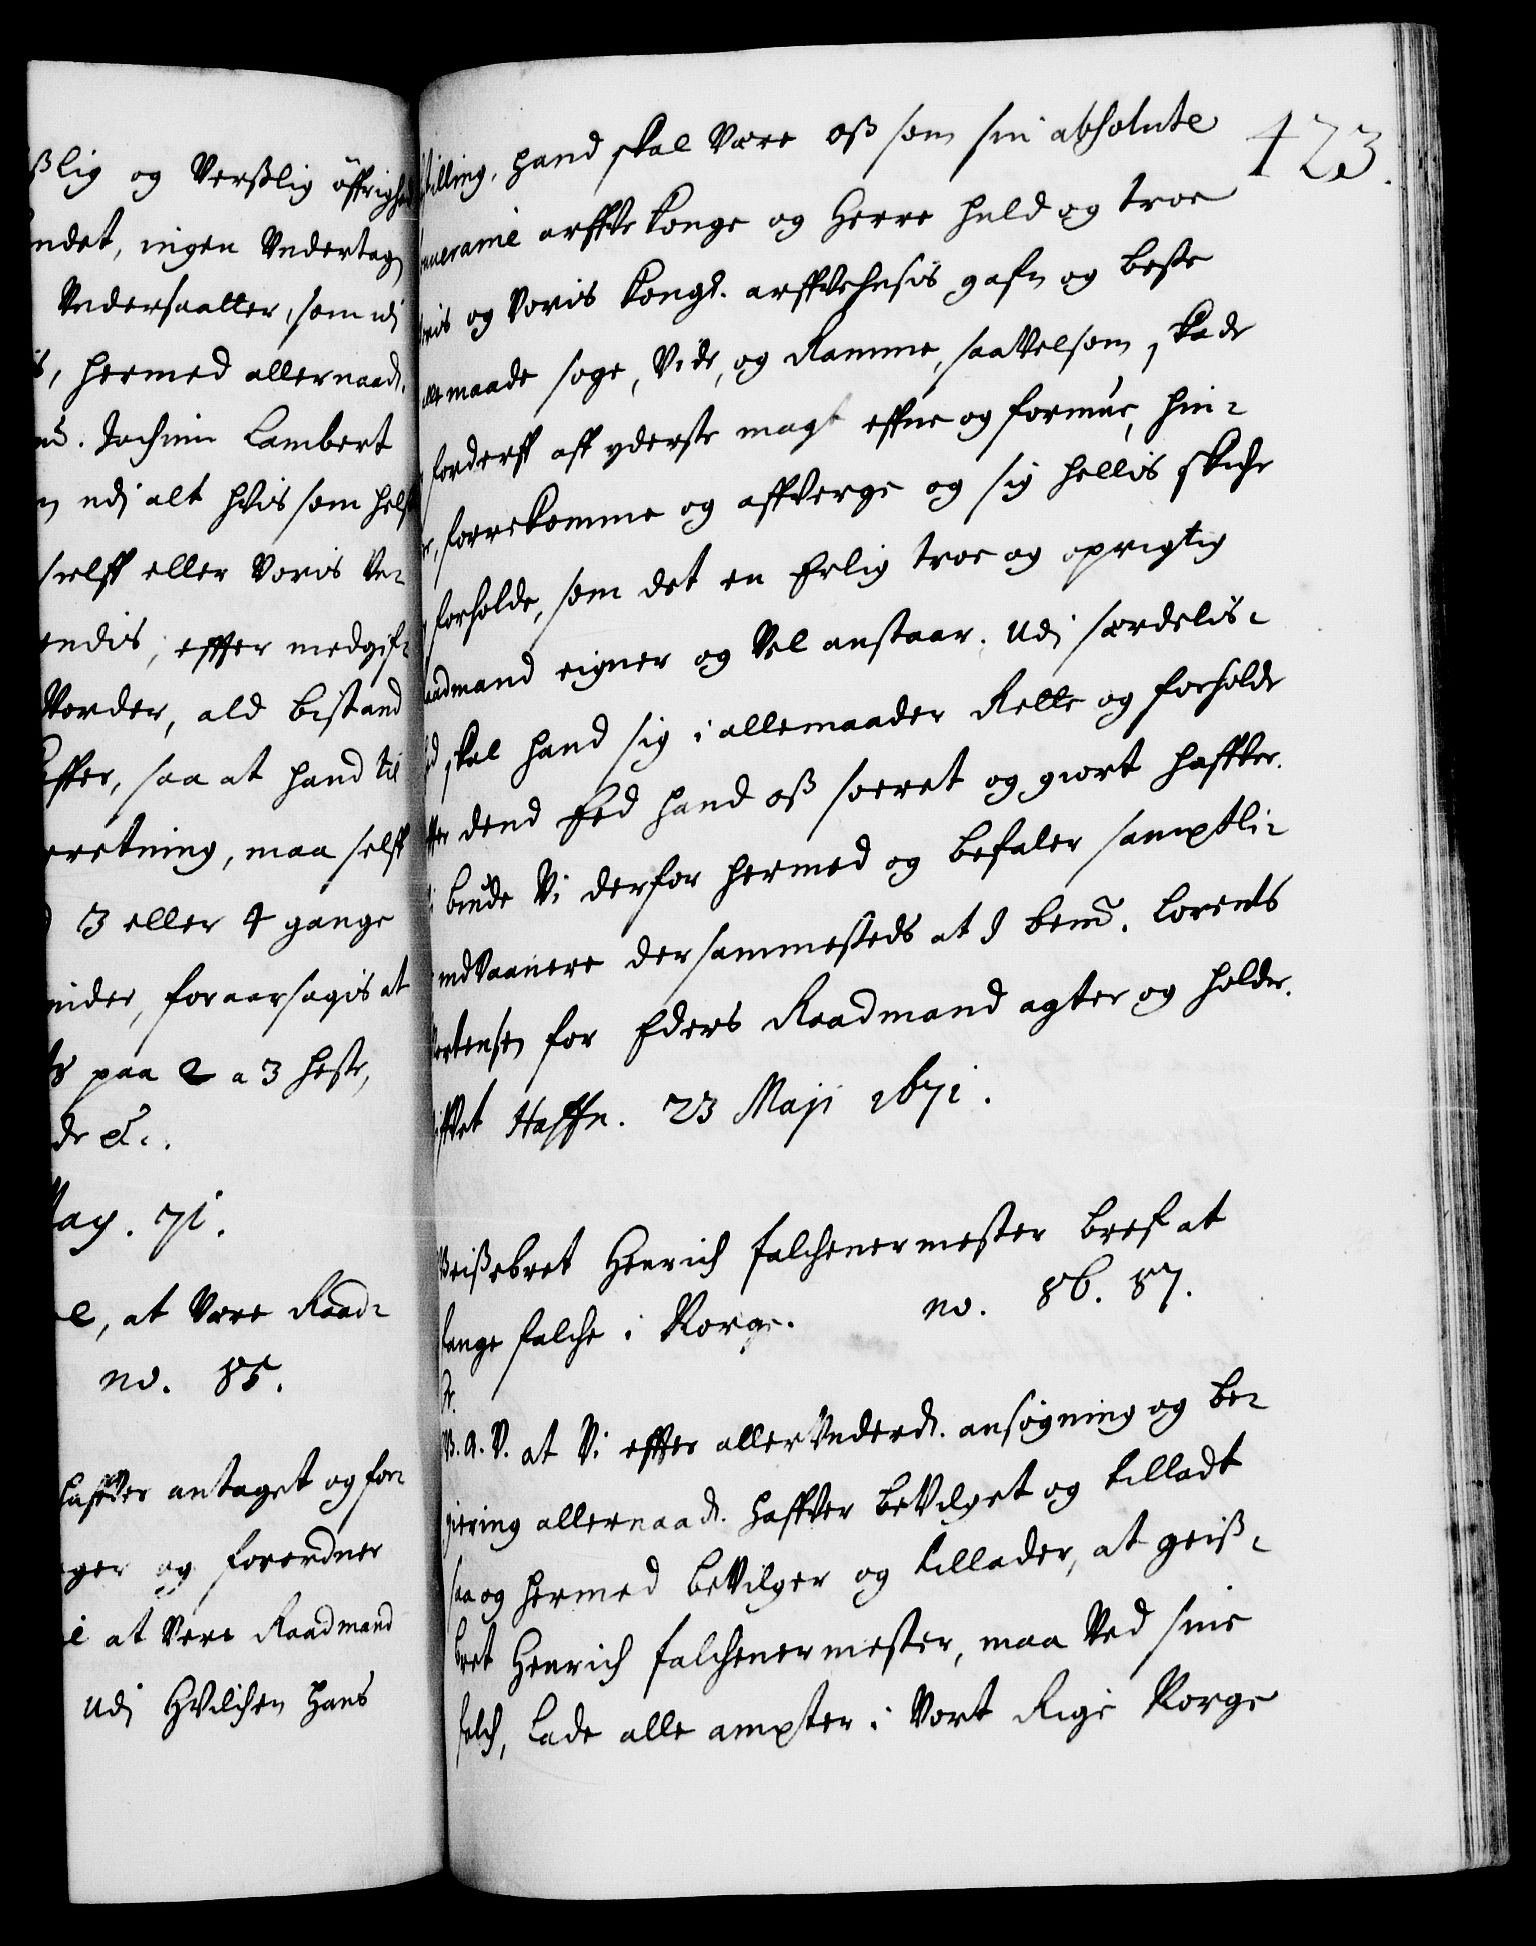 ßlig og Verßlig öffrighed
ndet, ingen Vndertagen
Vndersaatter, som udj
is, hermed allernaad.
md. Jochim Lambert
n udj alt hvis som helst
sielff eller Voris Ve-
endis, effter medgif-
Vorder, ald bistand
effter, saa at hand til
retning, maa selff
3 eller 4 gange
nider, foraarsagis at
paa 2 a 3 heste,
de etc.
May. 71.
e, at Være Raad-
no. 85.
haffver antaget og for-
ger og forordner
e at Vere Raadmand
udj Hvilchen hans
423.
stilling, hand skal Være oß som sin absolute
souveraine arffve Konge og Herre huld og troe
Voris og Voris Kongl. arffvehusis gafn og beste
alle maade søge, Vide, og Ramme, saaVelsom skade
forderff aff yderste magt effne og formue, hin-
forrekomme og affVerge og sig hellis skiche
forholde, som det en Erlig troe og oprigtig
Raadmand eigner og Vel anstaar. Udj særdelis-
hed skal hand sig i allemaader Rette og forholde
effter dend Eed hand oß soeret og giort haffver.
biude Vi derfor hermed og befaler samptli-
indVaanere dersammesteds at I bemd. Lorents
Mortensen for Eders Raadmand agter og holder.
giffvet Haffn. 23 Maji 1671.
Geißebret Henrich falchenermester bref at
fange falche i Norge. no. 86. 87.
G. A. V. at Vi effter allerVnderd. ansøgning og be-
giering allernaad. haffver beVilget og tilladt
saa og hermed beVilger og tillader, at geiß-
bret Henrich falchenermester, maa Ved sine
folch, Lade alle ampter i Vort Rige Norge